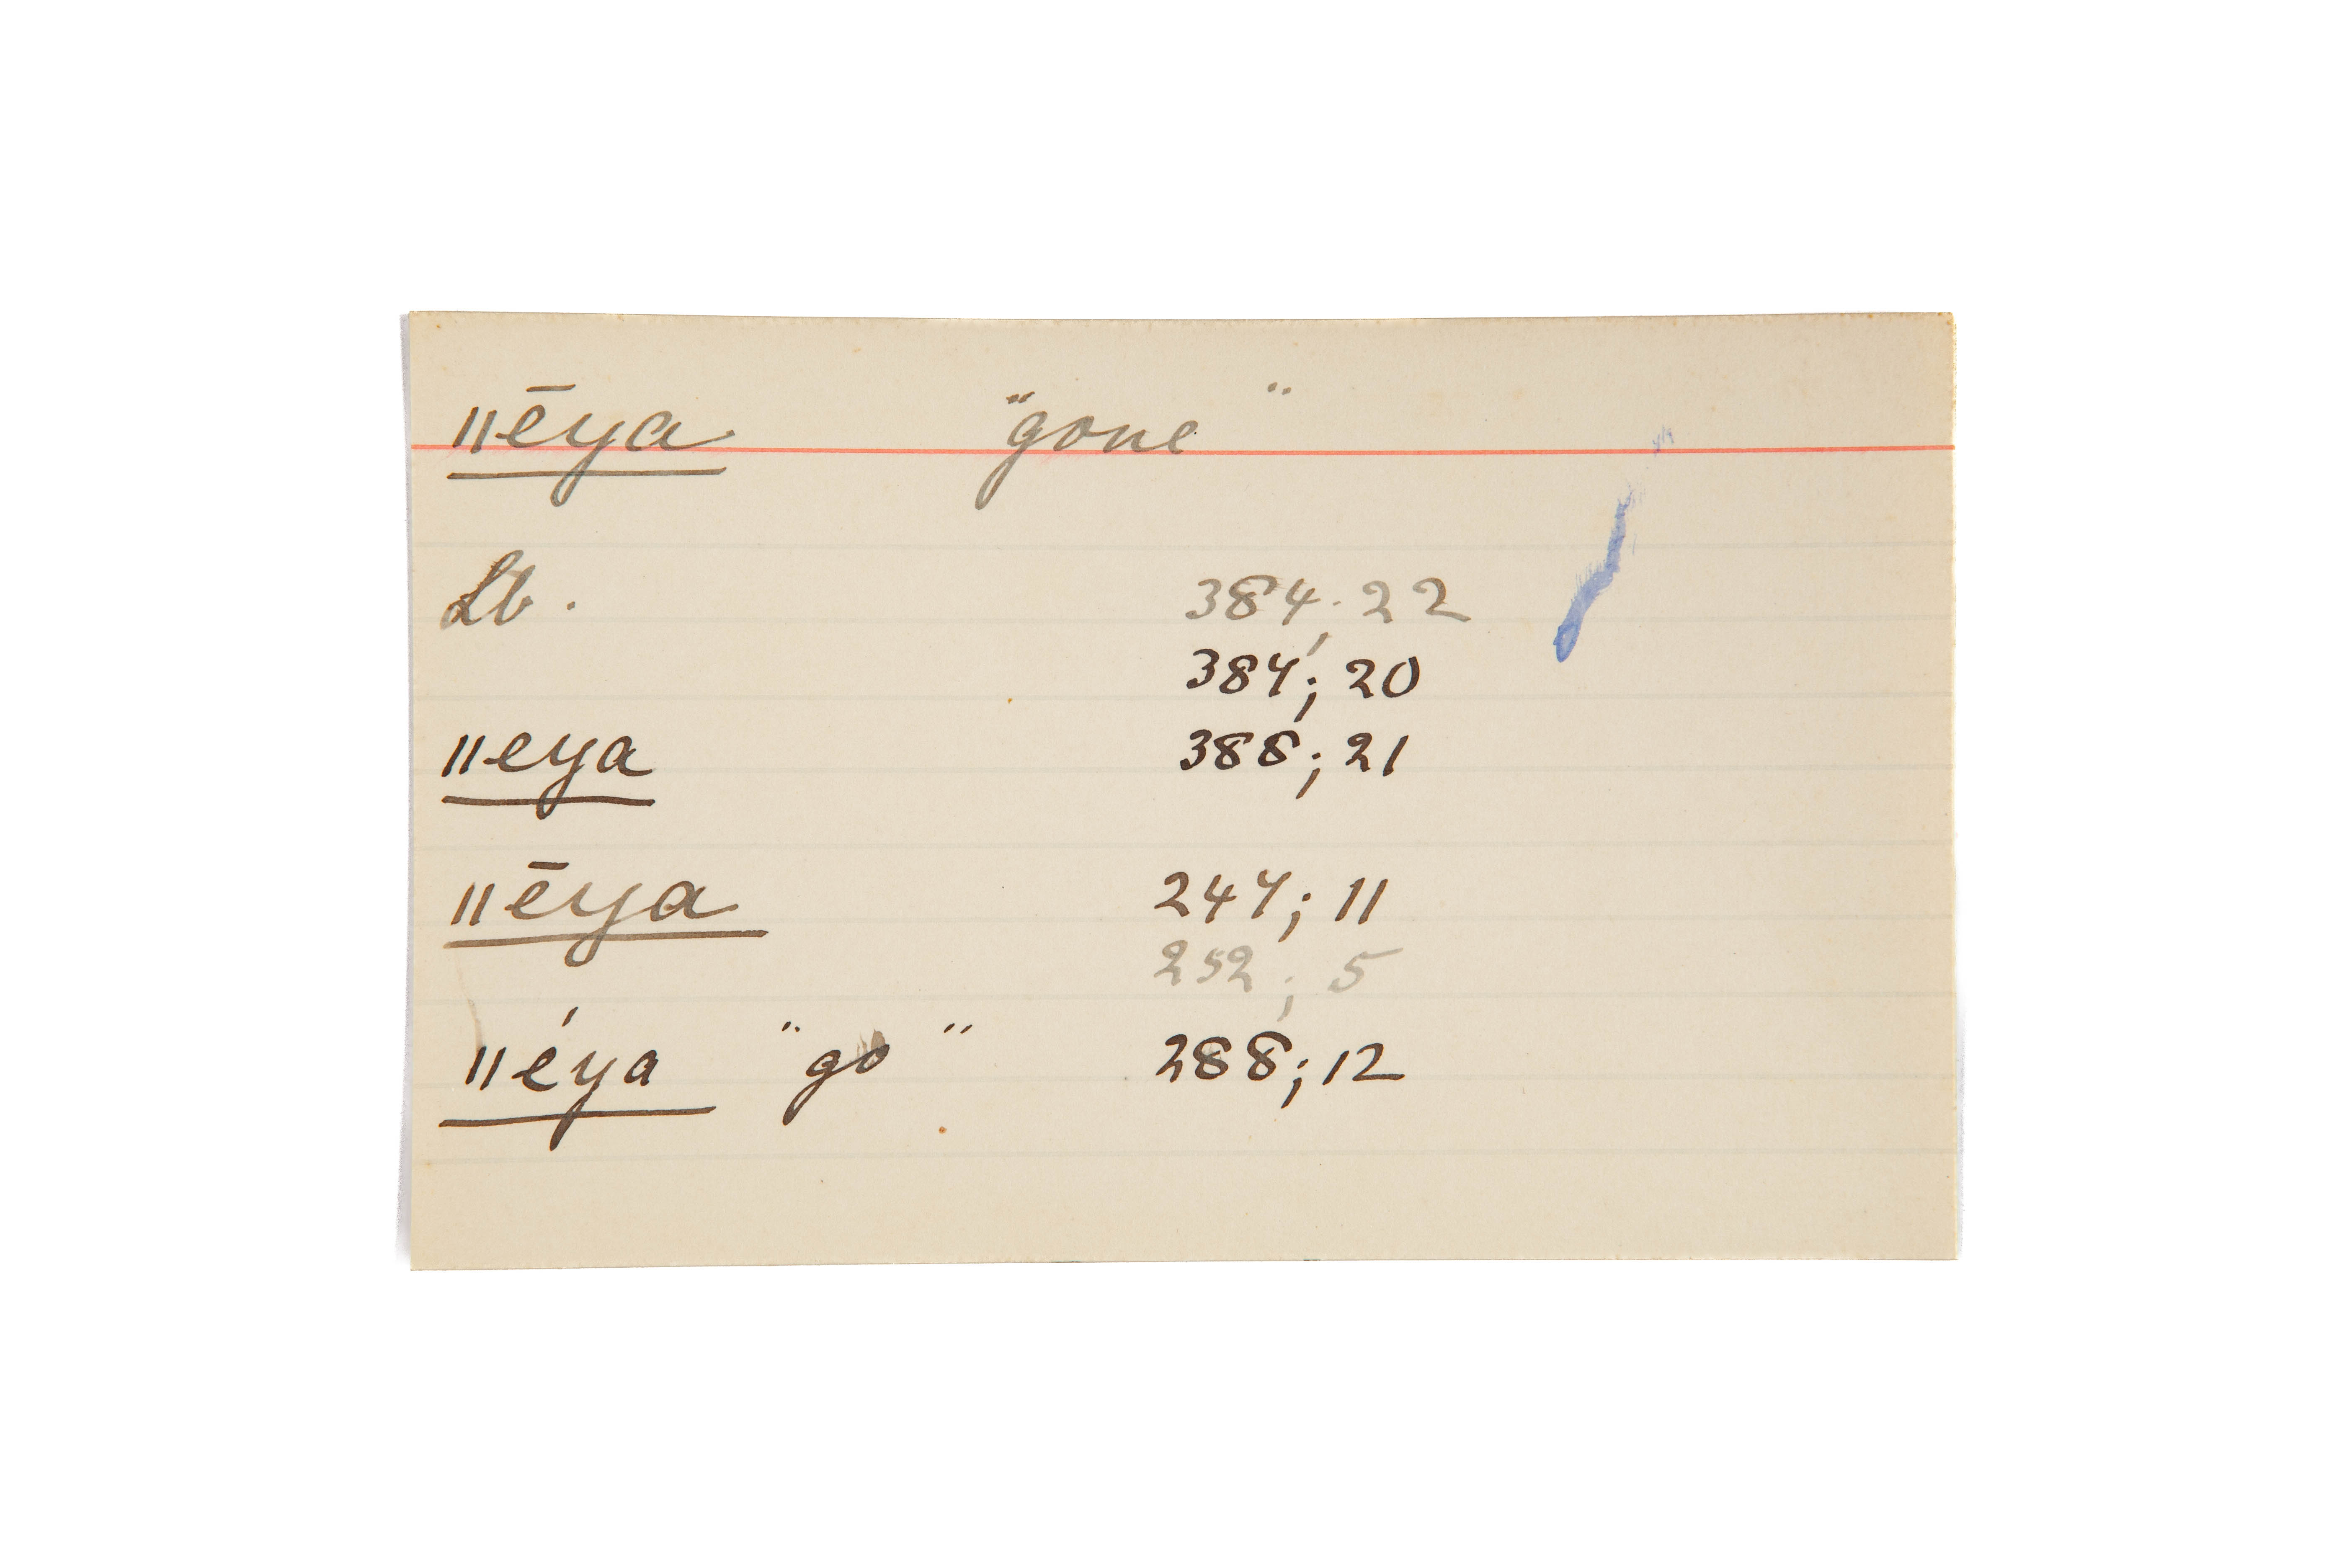 ǁēya "gone"
Lb. 384; 22
384; 20
ǁeya 388; 21
ǁēya 244; 11
252; 5
ǁéya "go" 288; 12